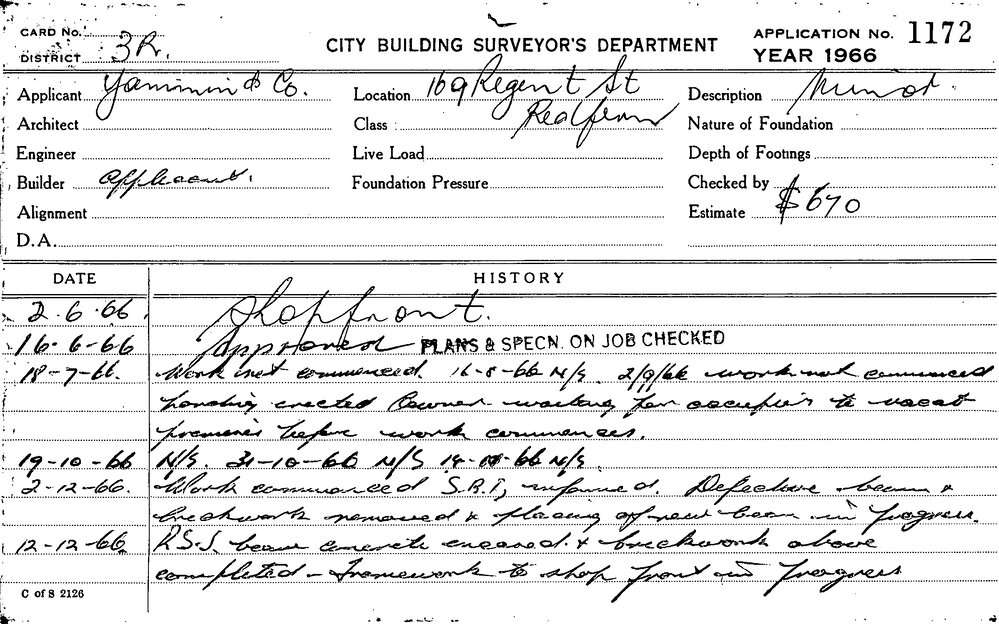 CARD No.
DISTRICT 3R.
CITY BUILDING SURVEYOR'S DEPARTMENT
APPLICATION No. 1172
YEAR 1966
Applicant Yaminin & Co. Location 169 Regent St Description Minor.
Architect Class Redfern Nature of Foundation
Engineer Live Load Depth of Footings
Builder applicant. Foundation Pressure Checked by
Alignment Estimate $670
D.A.
DATE HISTORY
2.6.66. Shopfront.
16-6-66 Approved PLANS & SPECN. ON JOB CHECKED
18-7-66. Work not commenced. 16-8-66 N/S. 2/9/66 work not commenced
hoarding erected Owner waiting for occupier to vacat
premises before work commences.
19-10-66 N/S. 31-10-66 N/S 14-11-66 N/S.
2-12-66. Work commenced S.B.I, informed. Defective beam &
brickwork removed & placing of new beam in progress.
12-12-66. R.S.J. beam concrete encased & brickwork above
completed - framework to shop front in progress
C of S 2126